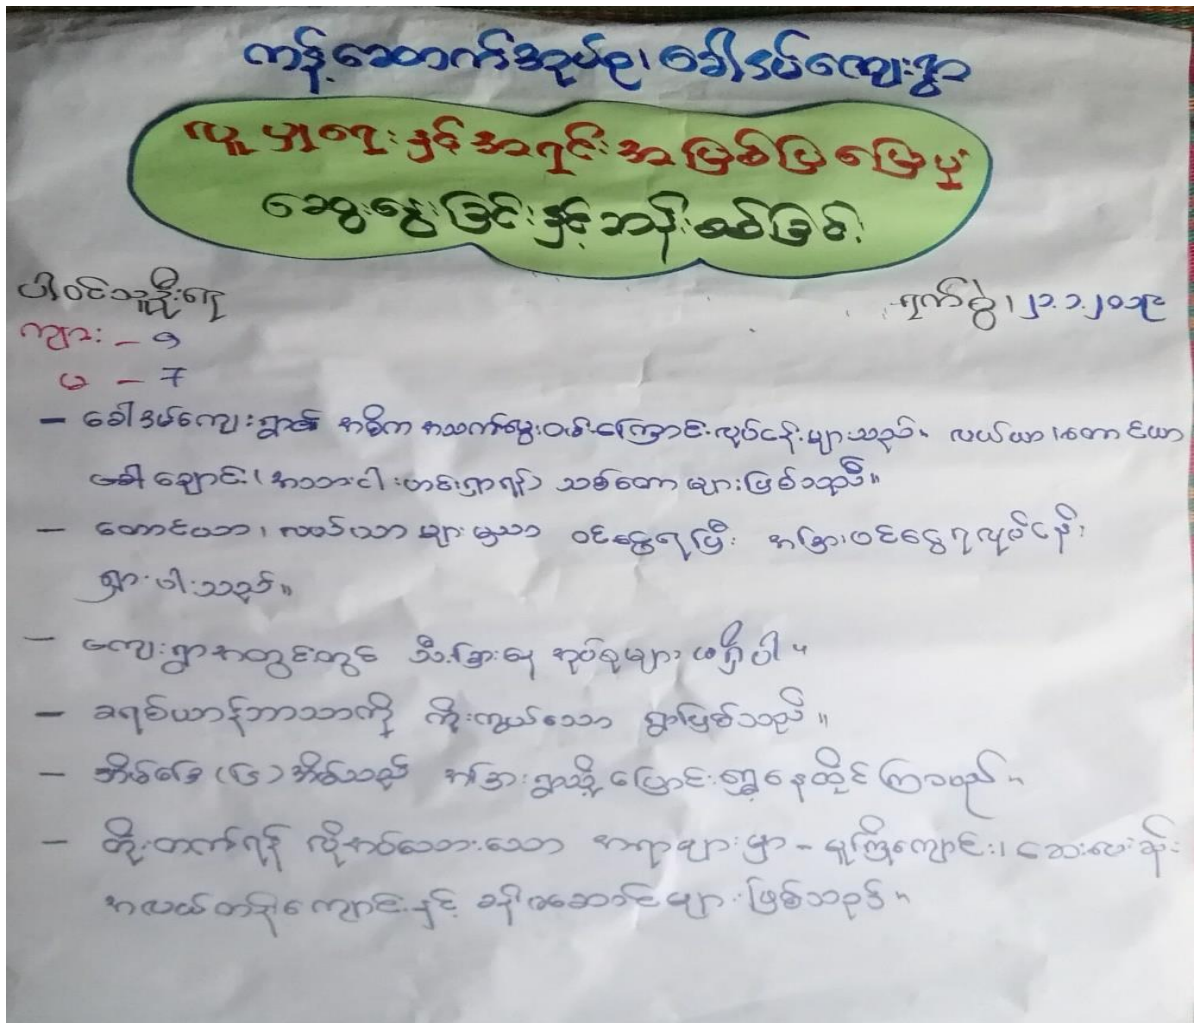 ကန့်ဆောက်အုပ်စု၊ ခေါ်ဒမ်ကျေးရွာ
လူမှုရေးနှင့်အရင်းအမြစ်ပြမြေပုံ
ဆွေးနွေးခြင်းနှင့်ဆန်းစစ်ခြင်း
ပါဝင်သူဦးရေ
ရက်စွဲ၊ ၂၁.၁.၂၀၁၉
ကျား - ၁
မ - 7
- ခေါ်ဒမ်ကျေးရွာ၏ အဓိက အသက်မွေးဝမ်းကြောင်းလုပ်ငန်းများသည်။ လယ်ယာ၊ တောင်ယာ
ချောင်း (အသားငါးဟင်းရှာရန်) သစ်တောများဖြစ်သည်။
- တောင်ယာ၊ လယ်ယာများမှသာ ဝင်ငွေရပြီး အခြားဝင်ငွေရလုပ်ငန်း
ရှားပါးသည်။
- ကျေးရွာအတွင်းတွင် သီးခြားနေ အုပ်စုများ မရှိပါ။
- ခရစ်ယာန်ဘာသာကို ကိုးကွယ်သော ရွာဖြစ်သည်။
- အိမ်ခြေ (၆) အိမ်သည် အခြားရွာသို့ ပြောင်းရွှေ့နေထိုင်ကြသည်။
- တိုးတက်ရန် လိုအပ်သေးသော အရာများမှာ - မူကြိုကျောင်း၊ ဆေးပေးခန်း
အလယ်တန်းကျောင်းနှင့် ခန်းမဆောင်များ ဖြစ်သည်။